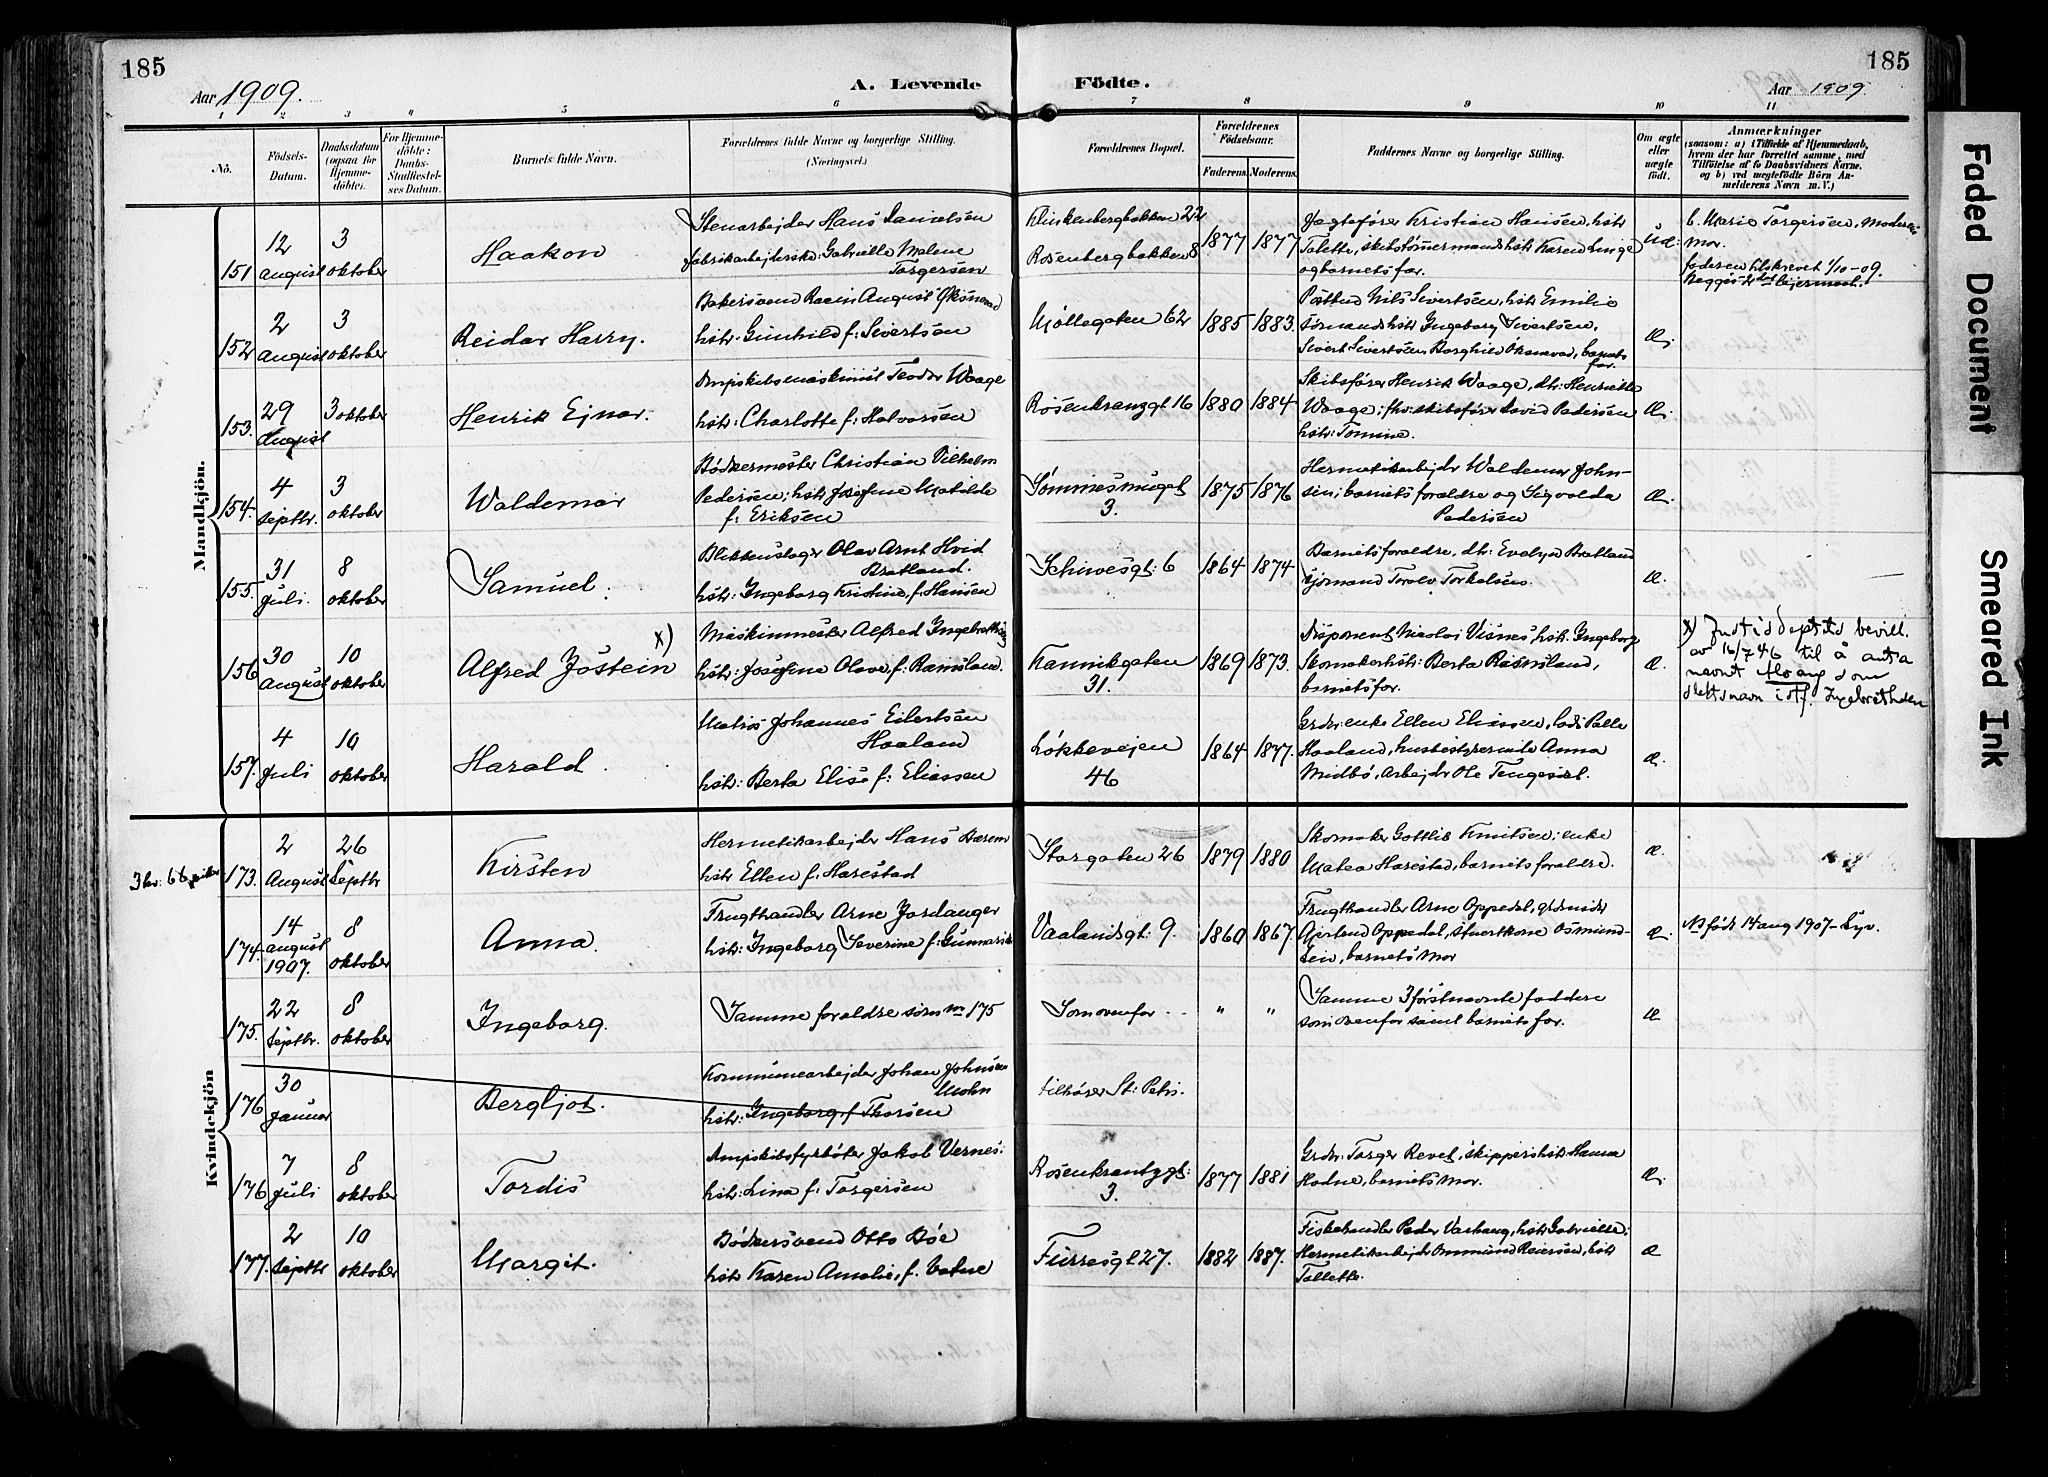 185
185
Aar 1909.
A. Levende
Födte.
Aar 1909.
1 2 3 4 5 6 7 8 9 10 11
No.
Födsels-
Datum.
Daabsdatum
(ogsaa for
Hjemme-
döbte).
For Hjemme-
döbte:
Daabs-
Stadfæstel-
ses Datum.
Barnets fulde Navn.
Forældrenes fulde Navne og borgerlige Stilling.
(Næringsvei.)
Forældrenes Bopæl.
Forældrenes
Födselsaar.
Faderens. Moderens.
Faddernes Navne og borgerlige Stilling.
Om ægte
eller
uægte
födt.
Anmærkninger
(saasom: a) i Tilfælde af Hjemmedaab,
hvem der har forrettet samme, med
Tilföielse af to Daabsvidners Navne.
og b) ved uægtefödte Börn An-
melderens Navn m. V.)
Mandkjön.
151
12
august
3
oktober
Haakon
Stenarbejder Hans Danielsen
fabrikarbejderske: Gabrielle Malene
Torgersen
Klinkenbergbakken 22
Rosenbergbakken 8
1877
1877
Jagtefører Kristian Hansen, hstr
Talette, skibstømermandshstr Karen Linge
og barnets far.
Uæ:
b. Marie Torgersen, Moderens
Mor.
faderen tilskrevet 1/10-09.
Begges 2det lejermaal.
152
2
august
3
oktober
Reidar Harry.
Bakersvend Rasin August Øksnevad
hstr: Gunhild f: Sivertsen
Møllegaten 62
1885
1883.
Postbud Nils Sivertsen, hstr Emilie
Sømandshstr Ingeborg Sivertsen,
Sivert Sivertsen, Borghild Øksnevad, barnets
far.
Æ.
153.
29
August
3 oktober
Henrik Ejnar.
Dampskibsmaskinist Teodor Waage
hstr: Charlotte f: Halvorsen
Rosenkranzgt 16
1880
1884
Skibsfører Henrik Waage, dtr: Henriette
Waage; fhv: skibsfører David Pedersen
hstr: Tomine.
Æ.
154.
4
septbr.
3
oktober
Waldemar
Bødkermester Christian Vilhelm
Pedersen; hstr Josefine Matilde
f: Eriksen
Sømmesmuget
3.
1875
1876
Hermetikarbejdr Waldemar John-
sen; barnets foraldre og Sigvolda
Pedersen
Æ.
155.
31
Juli.
8
oktober
Samuel.
Blikkenslager Olav Arnt Hvid
Bratland.
hstr: Ingeborg Kristine, f: Hansen
Schivesgt: 6
1864
1874
Barnets foraldre, dtr: Evelyn Bratland
Sjømand Torolv Torkelsen.
Æ.
156
30
August
10
oktober
Alfred Jøstein x)
Maskinmester Alfred Ingebrethsen
hstr: Josefine Olave f: Ramsland.
Kannikgaten
31.
1869
1873.
Disponent Nicolai Visnes, hstr. Ingeborg
Skomakerhstr: Berta Ramsland,
barnets far.
Æ.
x) Justisdeptets bevill.
av 16/7 46 til å anta
navnet Hoang som
slektsnavn istf. Ingebrethsen
157.
4
Juli
10
oktober
Harald.
Matros Johannes Eilertsen
Haaland
hstr: Berta Elise f: Eliassen
Løkkevejen
46
1864
1877.
Grdr: enke Ellen Eliassen, Lods Palle
Haaland, husbestyrerinde Anna
Midbø, Arbejdr Ole Tengesdal.
Æ.
Kvindekjön
173.
2
August
26
Septbr
Kirsten
Hermetikarbejder Hans Barem
hstr Ellen f: Harestad
Storgaten 26
1879
1880
Skomaker Gottlib Knutsen; enke
Matea Harestad, barnets foraldre.
Æ.
174.
14
august
1907.
8
oktober
Anna.
Frugthandler Arne Jordanger
hstr: Ingeborg Severine f: Gunnarsd
Vaalandsgt: 9.
1860
1867.
Frugthandler Arne Oppedal, gbrnidr
Gjertrud Oppedal, stuertkone Osmund-
sen, barnets mor
Æ.
NB født 14 aug 1907 –
175.
22
septbr.
8
oktober
Ingeborg.
Samme foraldre som no 175
Som ovenfor
"
"
Samme 3 førstnevnte faddere
som ovenfor samt barnets far.
Æ
176
30
Januar
Bergljot.
Kommunearbejder Johan Johnsen
Mohn
hstr: Ingeborg f. Thorsen
tilhører St: Petri.
176
7
Juli
8
oktober
Tordis
Dampskibsfyrbøter Jakob Vernes:
hstr: Lina f: Torgersen
Rosenkrantzgt:
3.
1877
1881
Grdr: Torger Revet, skippershstr Hanna
Hodne, barnets mor.
Æ.
177.
2
septbr
10
oktober
Margit.
Bødkersvend Otto Bøe
hstr Karen Amalie, f. Vatne
Furresgt 27.
1882
1887.
Fiskehandler Peder Varhaug, hstr Gabrielle;
Hermetikarbejdr Ommund Reiersen, hstr
Tallette.
Æ
Faded Document
Smeared Ink